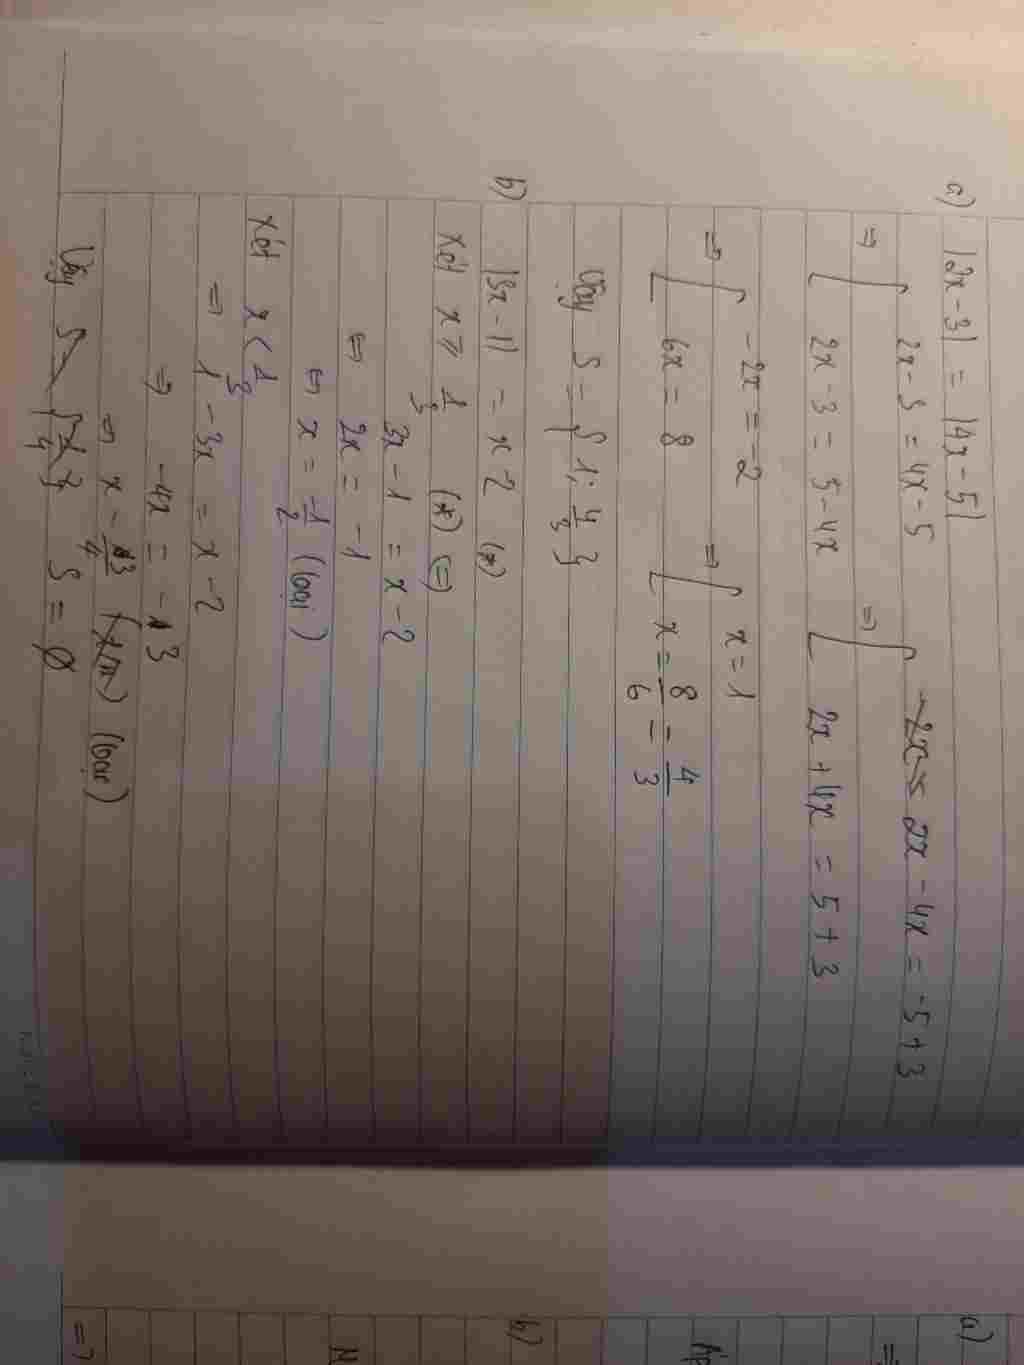 a) |2x-3| = |4x-5|
⇒ [ 2x-3 = 4x-5 ⇒ [ 2x-4x = -5+3
2x-3 = 5-4x 2x+4x = 5+3
⇒ [ -2x = -2 ⇒ [ x = 1
6x = 8 x = 8/6 = 4/3
Vậy S = {1; 4/3}
b) |3x-1| = x-2 (*)
Xét x ≥ 1/3 (*) ⇔
3x-1 = x-2
⇔ 2x = -1
⇔ x = -1/2 (loại)
Xét x < 1/3
⇒ 1-3x = x-2
⇒ -4x = -3
⇒ x = 3/4 (loại)
Vậy S = Ø
a)
b)
N
⇒